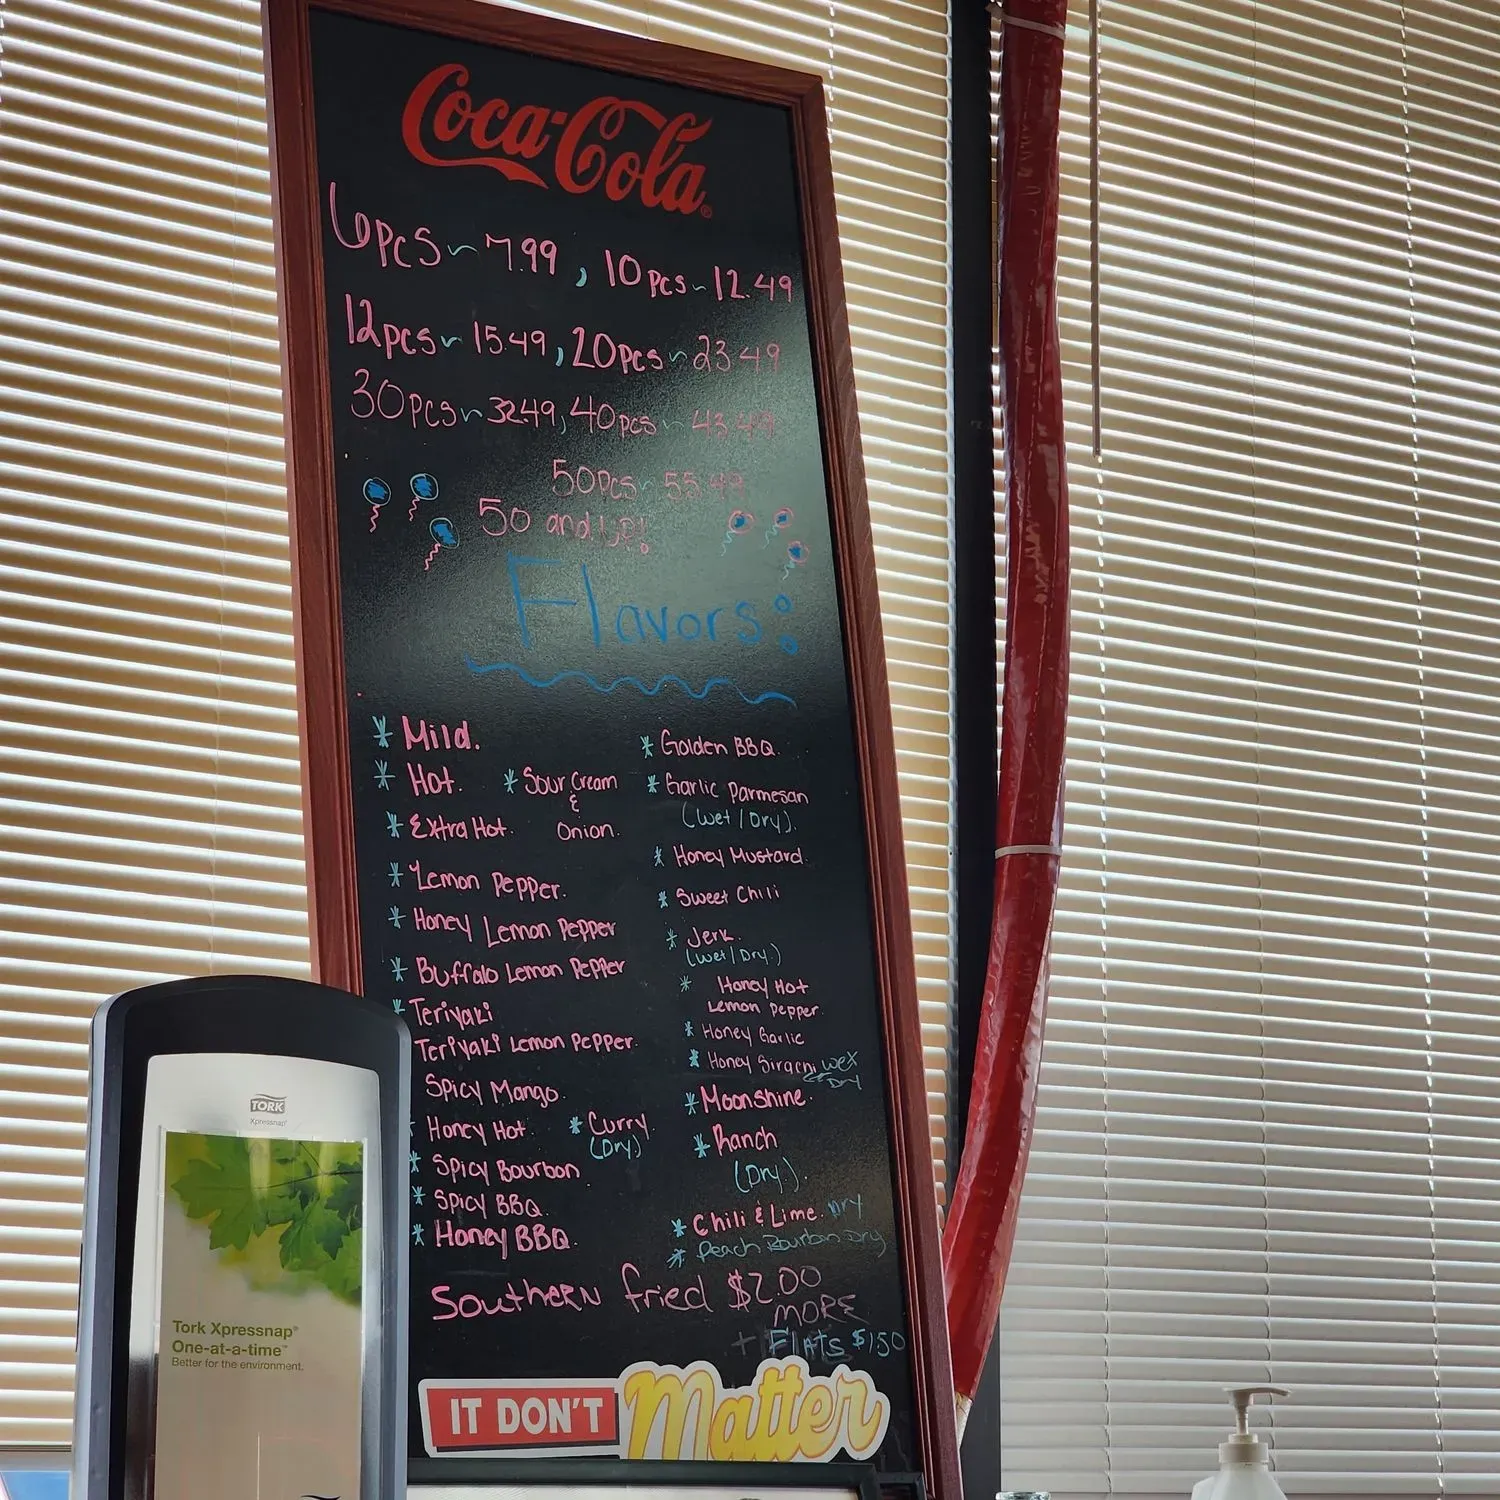 Coca-Cola®
6pcs ~ 7.99, 10pcs ~ 12.49
12pcs ~ 15.49, 20pcs ~ 23.49
30pcs ~ 32.49, 40pcs ~ 43.49
50pcs ~ 55.49
50 and UP!
Flavors:
* Mild.
* Hot.
* Sour Cream
&
Onion.
* Extra Hot.
* Lemon Pepper.
* Honey Lemon Pepper
* Buffalo Lemon Pepper
* Teriyaki
Teriyaki Lemon Pepper.
Spicy Mango.
Honey Hot.
* Curry.
(Dry)
* Spicy Bourbon
* Spicy BBQ.
* Honey BBQ.
* Golden BBQ.
* Garlic Parmesan
(Wet/Dry).
* Honey Mustard.
* Sweet Chili
* Jerk.
(Wet/Dry.)
* Honey Hot
Lemon Pepper.
* Honey Garlic
* Honey Sirachi
Dry
* Moonshine.
* Ranch
(Dry.).
* Chili & Lime. Dry
* Peach Bourbon Dry
Southern fried $2.00
MORE
+ Flats $1.50
IT DON'T Matter
TORK
Xpressnap®
Tork Xpressnap®
One-at-a-time™
Better for the environment.